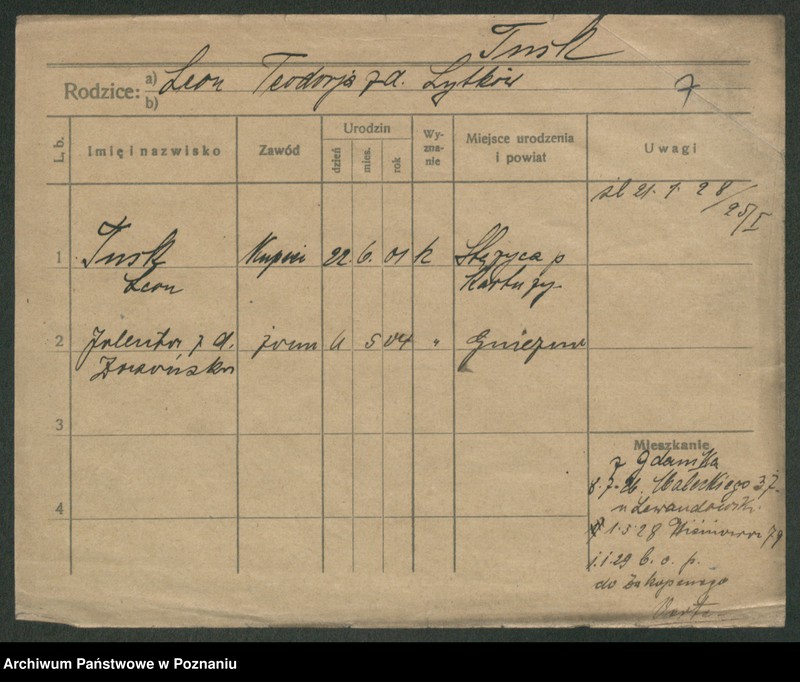 Tusk
Rodzice: a) Leon Teodozja z d. Lytków
b)
7
L. b. Imię i nazwisko Zawód Urodzin dzień mies. rok Wyznanie Miejsce urodzenia i powiat Uwagi
śl 21. 1. 28/25/I
1 Tusk Kupiec 22. 6. 01 k Stężyca p
Leon Kartuzy
2 Jolenta z d. żona 5 04 " Gniezno
3
Mieszkanie
z Gdańska
8. 7. 26. Małeckiego 37
u Lewandowsk.
4
1. 5 28 Wiśniowa 79
1. 1 29 b. o. p.
do Zakopanego
Archiwum Państwowe w Poznaniu